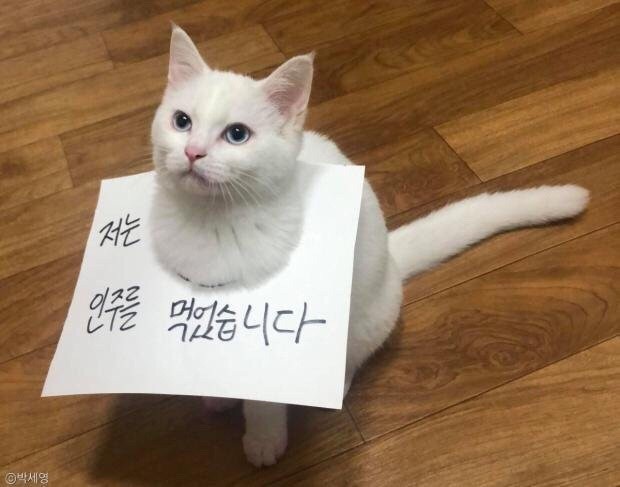 저는
인주를 먹었습니다
©박세영